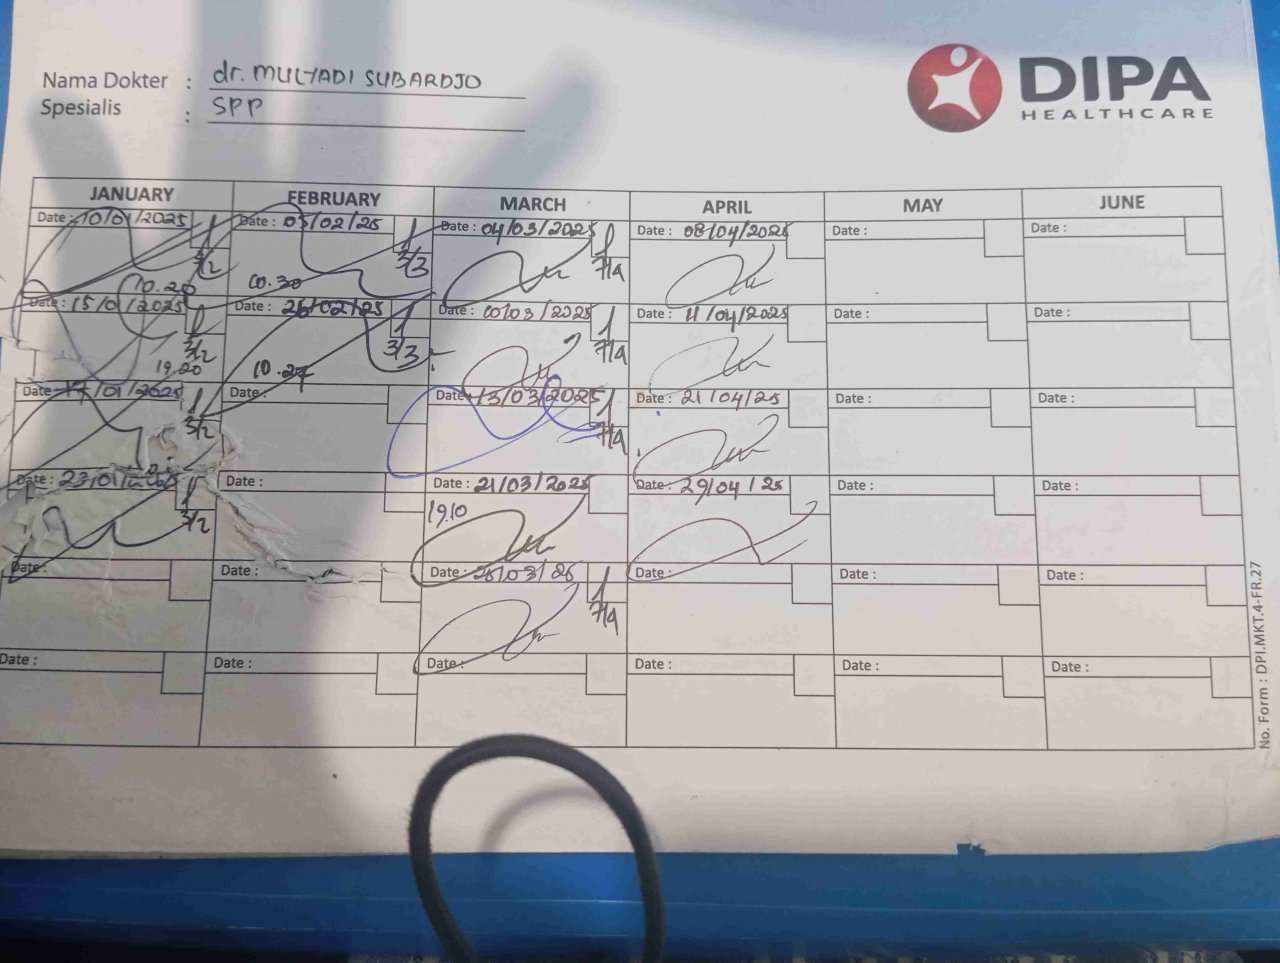 Nama Dokter : dr. MULYADI SUBARDJO
Spesialis : SPP
DIPA
HEALTHCARE
JANUARY FEBRUARY MARCH APRIL MAY JUNE
Date : 10/01/2025 Date : 05/02/25 Date : 04/03/2025 Date : 08/04/2025 Date : Date :
3/2 3/3 7/4
10.20 10.30
Date : 15/01/2025 Date : 26/02/25 Date : 10/03/2025 Date : 11/04/2025 Date : Date :
3/2 3/3 7/4
19.20 10.27
Date : 17/01/2025 Date : Date : 13/03/2025 Date : 21/04/25 Date : Date :
3/2 7/4
Date : 23/01/2025 Date : Date : 21/03/2025 Date : 29/04/25 Date : Date :
3/2 19.10
Date : Date : Date : Date : Date : Date :
7/4
Date : Date : Date : Date : Date : Date :
No. Form : DPI.MKT.4-FR.27